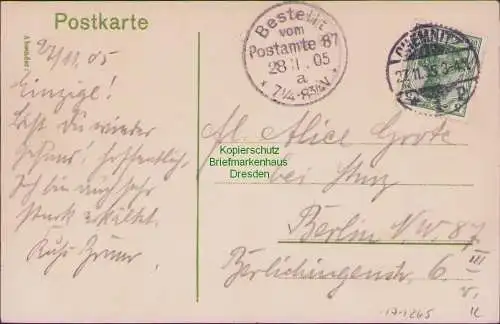 Postkarte
Absender:
27/11.05
Einzige!
Bist Du wieder
gesund? Hoffentlich.
Ich bin auch sehr
stark erkältet.
Bestellt
vom
Postamte 87
28 11.05
a
* 7¼-8¾N *
CHEMNITZ
27.11.05. 3-4
M. Alice Grote
bei
Berlin N.W 87
Berlichingenstr. 6
III
v.
Kopierschutz
Briefmarkenhaus
Dresden
171265